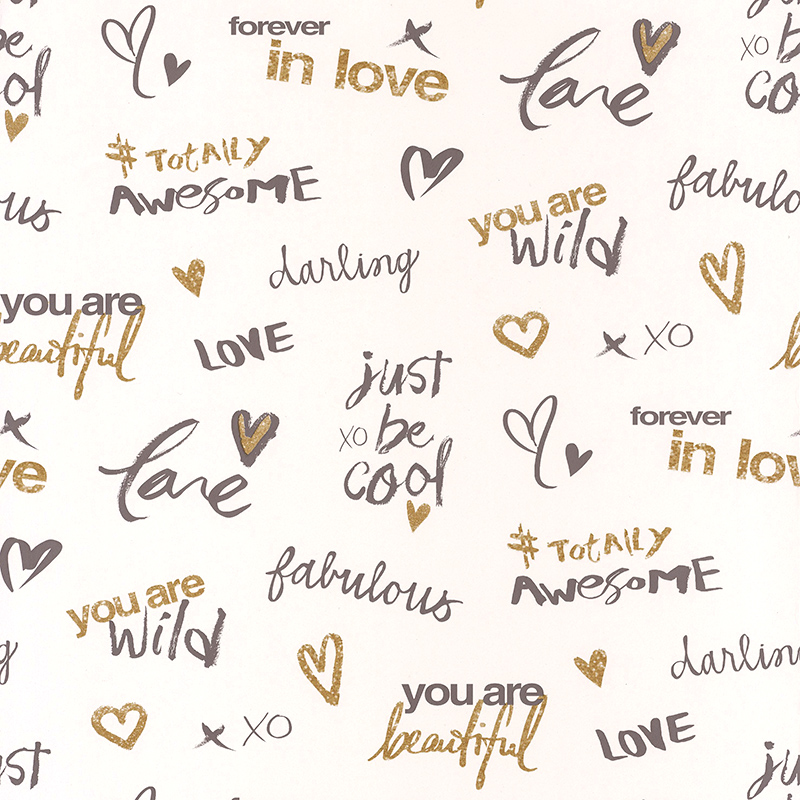 be
ool
forever
in love
love
xo b
co
#TotAlly
AwesoME
us
fabulo
you are
wild
darling
you are
beautiful
LOVE
XO
just
xo be
cool
love
forever
in lov
ve
#TotAlly
AwesoME
fabulous
you are
wild
g
darlin
you are
beautiful
XO
LOVE
st
jus